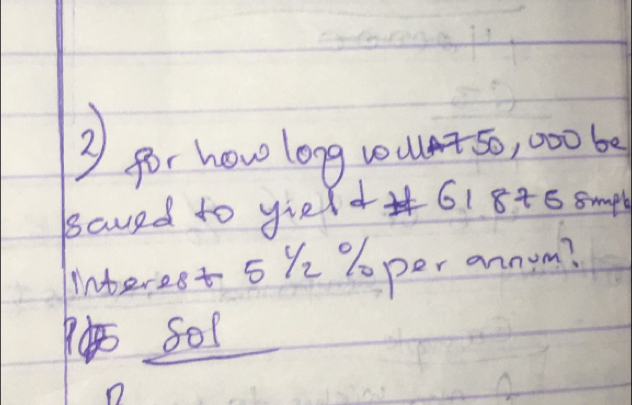 2) for how long will ₦750,000 be
saved to yield ₦ 61 875 simple
Interest 5 1/2 % per annum?
Sol